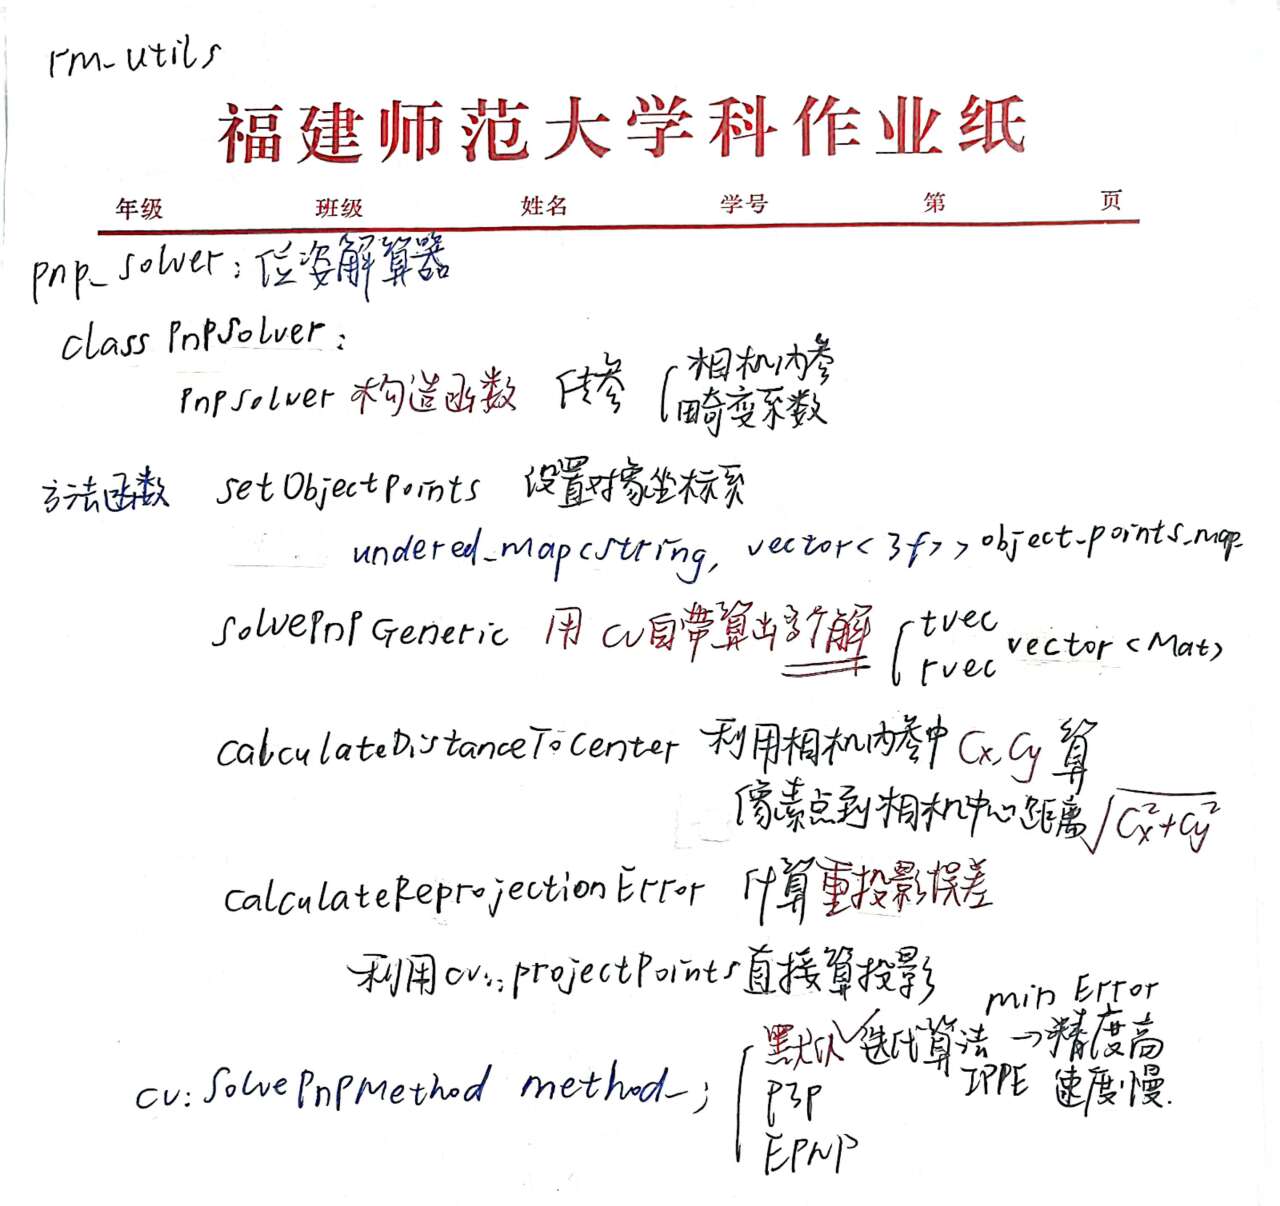 rm-utils
福建师范大学科作业纸
年级 班级 姓名 学号 第 页
pnp_solver：位姿解算器
class PnPSolver：
PnPsolver 构造函数 传参 { 相机内参
畸变系数
方法函数 setObjectPoints 设置对象坐标系
undered_map<string, vector<3f>> object-points-map
solvePnPGeneric 用cv自带算出多个解 { tvec
rvec vector<Mat>
calculateDistanceToCenter 利用相机内参中 Cx, Cy 算
像素点到相机中心距离 √(Cx²+Cy²)
calculateReprojectionError 计算重投影误差
利用cv::projectPoints直接算投影
min Error
cv:SolvePnPMethod method_; { 默认 迭代算法 → 精度高
IPPE 速度慢.
P3P
EPNP